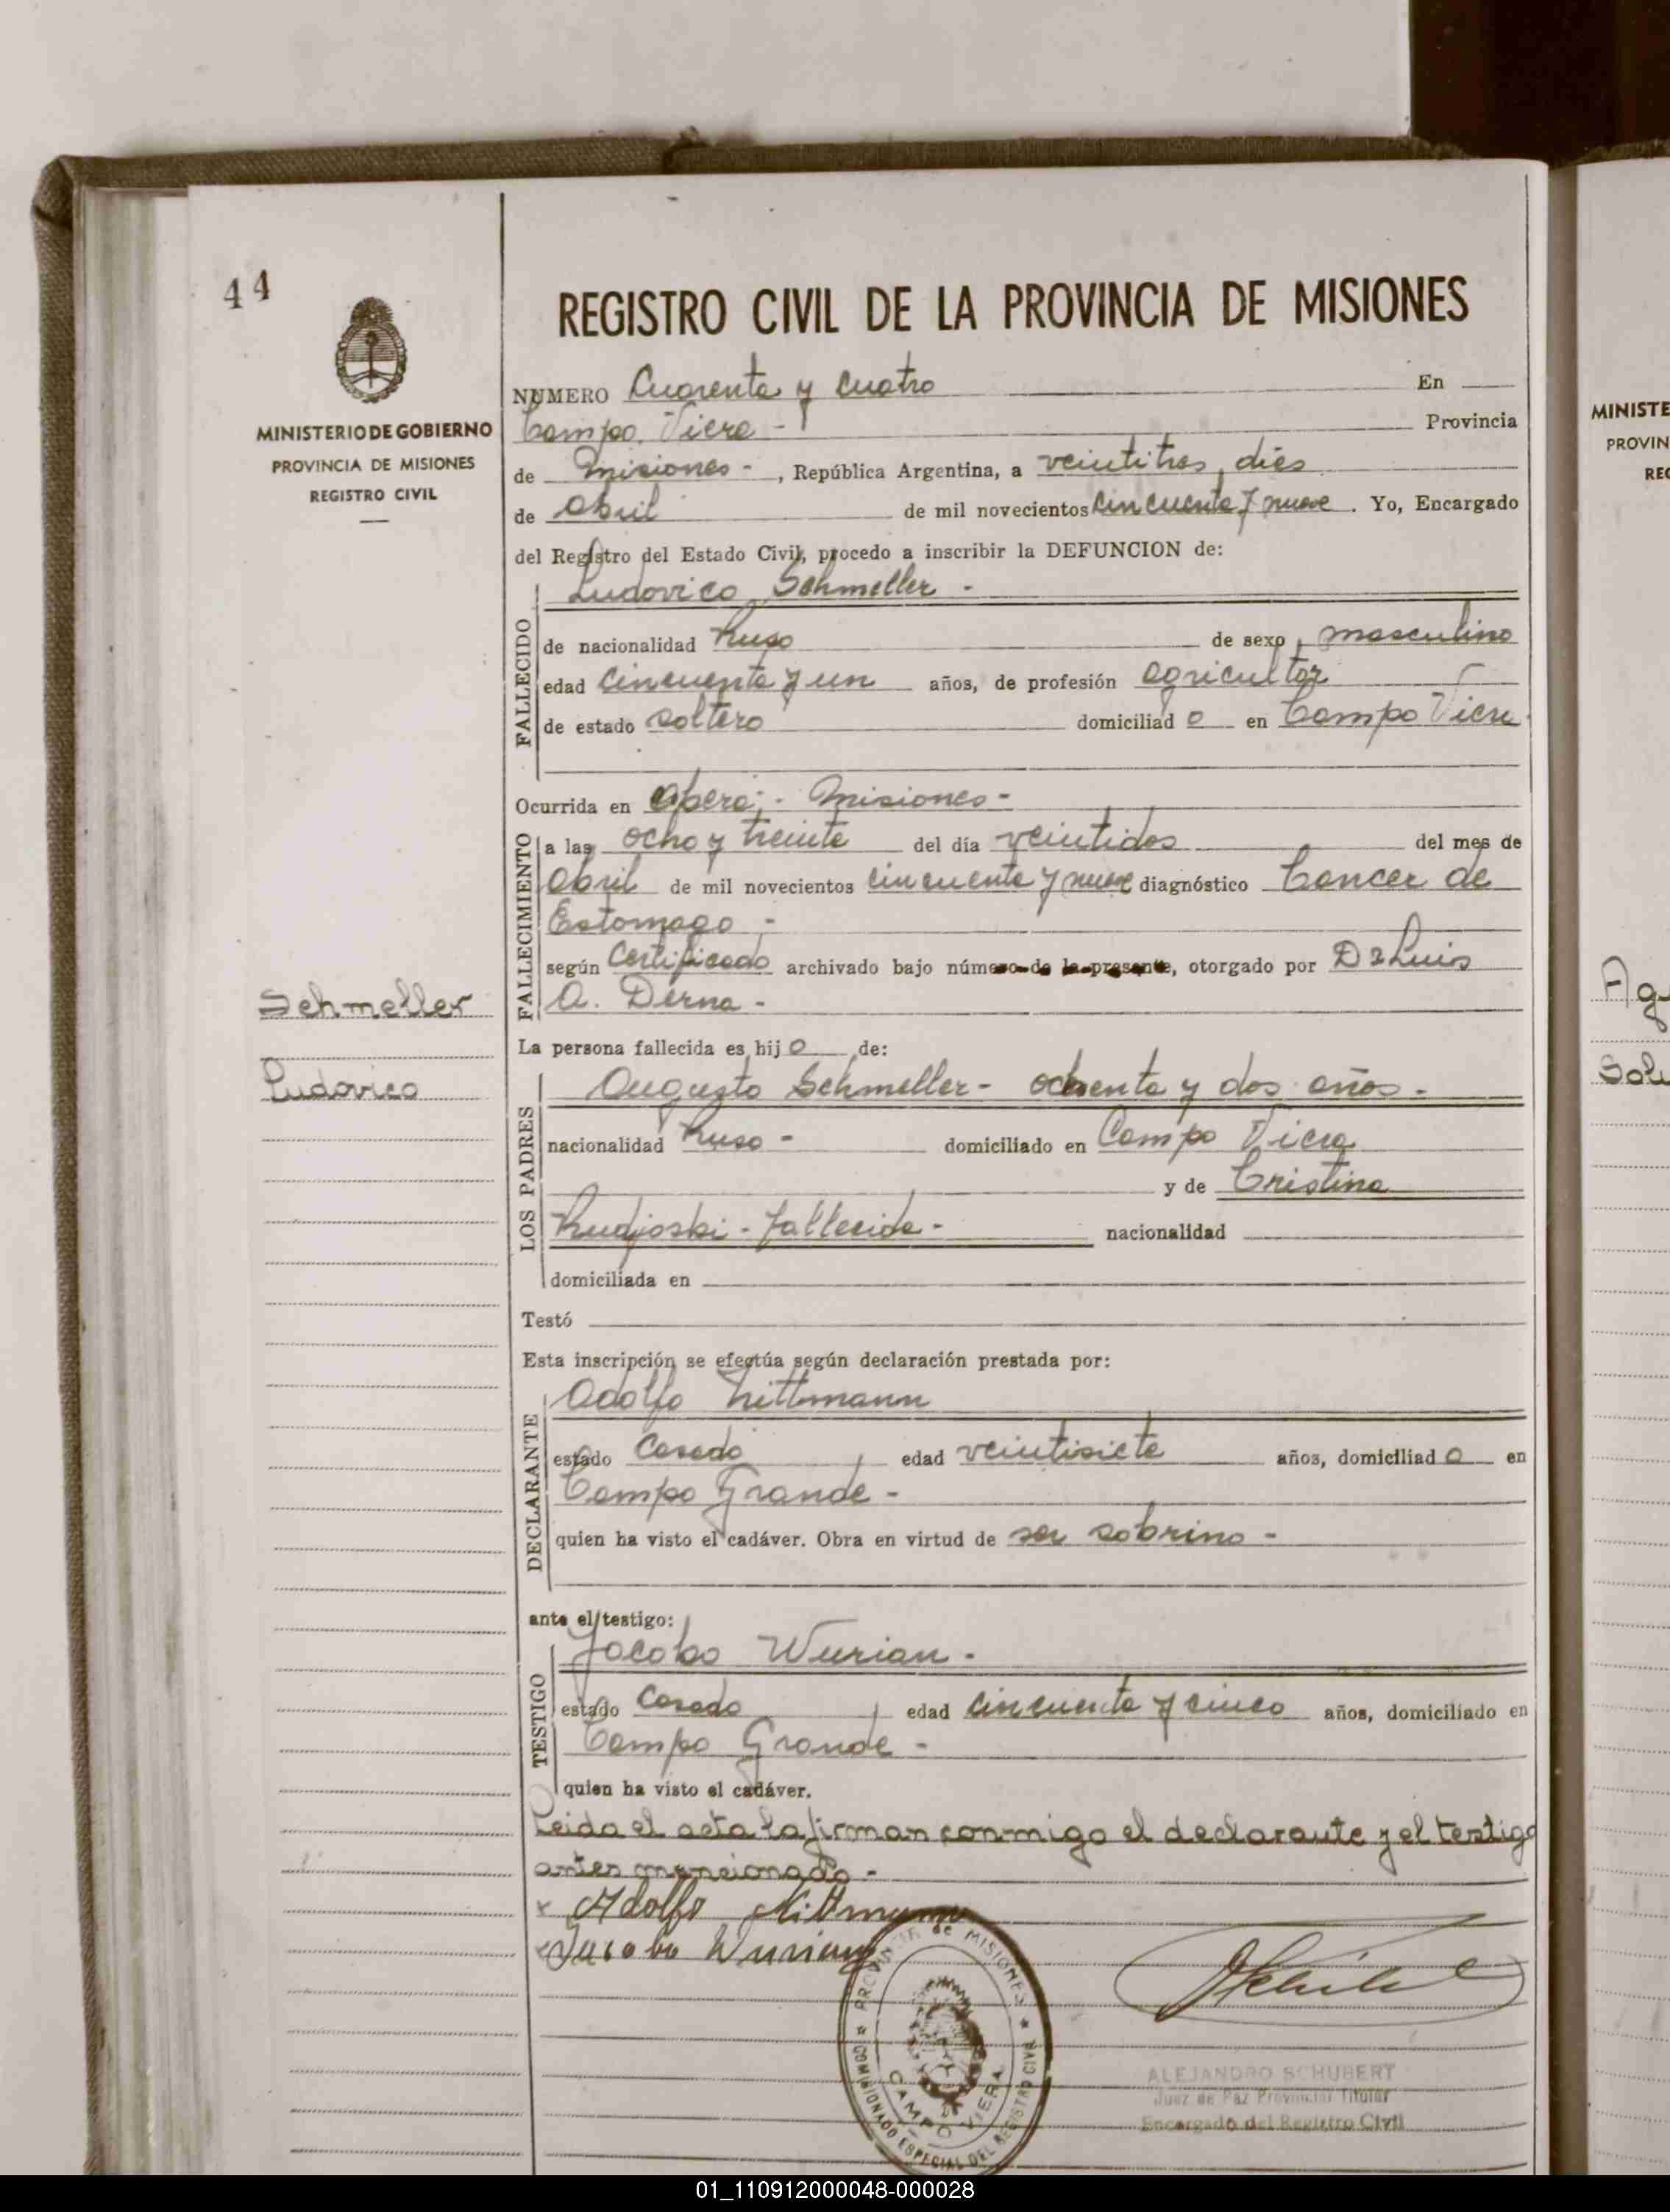 44
REGISTRO CIVIL DE LA PROVINCIA DE MISIONES
MINISTERIO DE GOBIERNO
PROVINCIA DE MISIONES
REGISTRO CIVIL
NUMERO Cuarenta y Cuatro En
Campo Viera - Provincia
de Misiones - , República Argentina, a veintitres dias
de Abril de mil novecientos cincuenta y nueve . Yo, Encargado
del Registro del Estado Civil, procedo a inscribir la DEFUNCION de:
Ludovico Schmeller -
FALLECIDO
de nacionalidad Ruso de sexo masculino
edad cincuenta y un años, de profesión agricultor
de estado soltero domiciliad o en Campo Viera
Ocurrida en Oberá - Misiones -
FALLECIMIENTO
a las ocho y treinta del día veintidos del mes de
Abril de mil novecientos cincuenta y nueve diagnóstico Cancer de
Estomago -
según Certificado archivado bajo número de la presente, otorgado por Dr Luis
A. Derna -
Schmeller
Ludovico
La persona fallecida es hij o de:
LOS PADRES
Augusto Schmeller - ochenta y dos años -
nacionalidad Ruso - domiciliado en Campo Viera
y de Cristina
fallecida - nacionalidad
domiciliada en
Testó
Esta inscripción se efectúa según declaración prestada por:
DECLARANTE
Adolfo
estado Casado edad veintisiete años, domiciliad o en
Campo Grande -
quien ha visto el cadáver. Obra en virtud de ser sobrino -
ante el testigo:
TESTIGO
Jacobo Wurian -
estado Casado edad cincuenta y cinco años, domiciliado en
Campo Grande -
quien ha visto el cadáver.
Leida el acta la firman conmigo el declarante y el testigo
antes mencionado -
Adolfo
Jacobo Wurian
PROVINCIA de MISIONES
COMISIONADO ESPECIAL DEL REGISTRO CIVIL
CAMPO VIERA
ALEJANDRO SCHUBERT
Juez de Paz Provincial Titular
Encargado del Registro Civil
MINISTE
PROVIN
REG
01_110912000048-000028